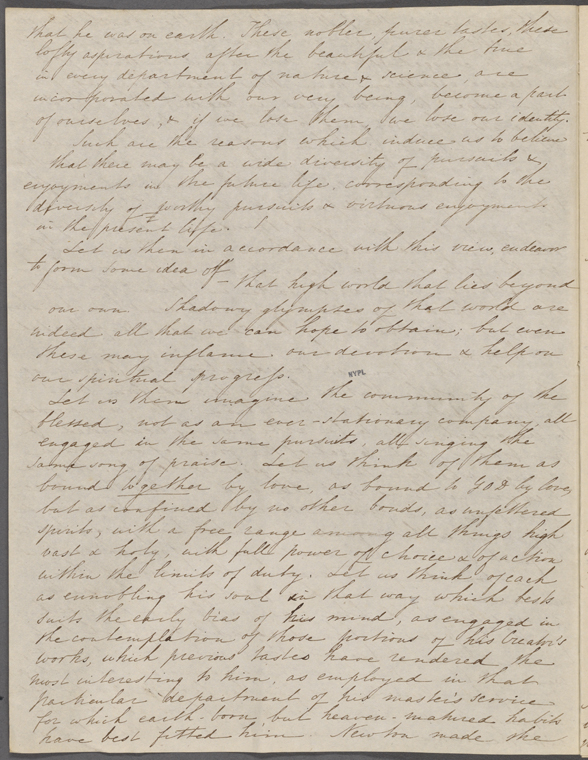 that he was on earth. These nobler, purer tastes, these
lofty aspirations after the beautiful & the true
in every department of nature & science are
incorporated with our very being, become a part
of ourselves, & if we lose them, we lose our identity.
Such are the reasons which induce us to believe
that there may be a wide diversity of pursuits &
enjoyments in the future life, corresponding to the
diversity of worthy pursuits & virtuous enjoyments
in the present life.
Let us then in accordance with this view, endeavor
to form some idea of that high world that lies beyond
our own. Shadowy glympses of that world are
indeed all that we can hope to obtain; but even
these may inflame our devotion & help on
our spiritual progress.
NYPL
Let us then imagine the community of the
blessed, not as an ever-stationary company, all
engaged in the same pursuits, all singing the
same song of praise. Let us think of them as
bound together by love, as bound to GOD by love,
but as confined by no other bonds, as unfettered
spirits, with a free range among all things high
vast & holy, with full power of choice & of action
within the limits of duty. Let us think of each
as ennobling his soul in that way which best
suits the early bias of his mind, as engaged in
the contemplation of those portions of his Creator's
works, which previous tastes have rendered the
most interesting to him, as employed in that
particular department of his master's service
for which earth-born, but heaven-matured habits
have best fitted him. Newton made the